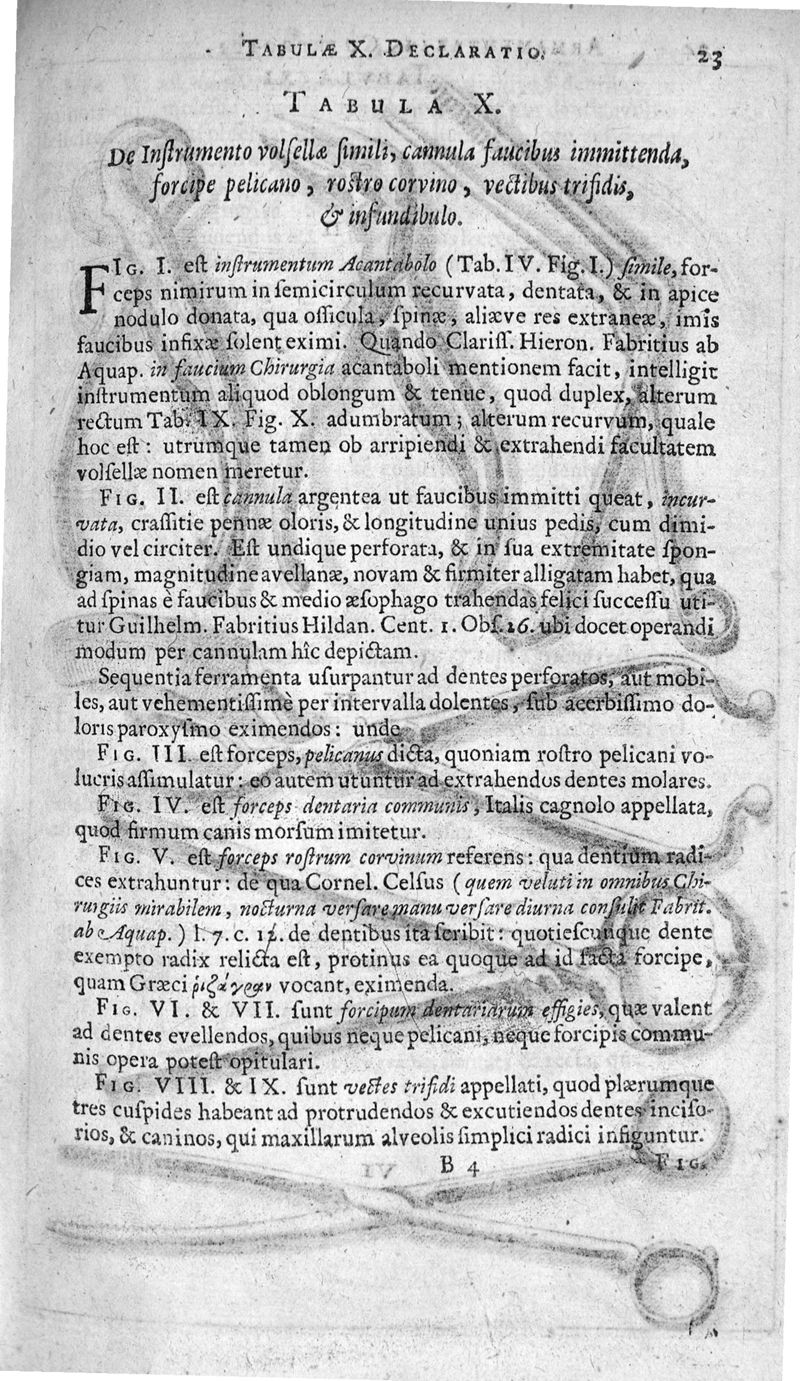 TABULÆ X. DECLARATIO. 23
TABULA X.
De Inſtrumento volſellæ ſimili, cannula faucibus immittenda,
forcipe pelicano, roſtro corvino, vectibus trifidis,
& infundibulo.
FIG. I. eſt inſtrumentum Acantabolo (Tab. IV. Fig. I.) ſimile, for-
ceps nimirum in ſemicirculum recurvata, dentata, & in apice
nodulo donata, qua oſſicula, ſpinæ, aliæve res extraneæ, imîs
faucibus infixæ ſolent eximi. Quando Clariſſ. Hieron. Fabritius ab
Aquap. in faucium Chirurgia acantaboli mentionem facit, intelligit
inſtrumentum aliquod oblongum & tenue, quod duplex, alterum
rectum Tab. IX. Fig. X. adumbratum; alterum recurvum, quale
hoc eſt: utrumque tamen ob arripiendi & extrahendi facultatem
volſellæ nomen meretur.
FIG. II. eſt cannula argentea ut faucibus immitti queat, incur-
vata, craſſitie pennæ oloris, & longitudine unius pedis, cum dimi-
dio vel circiter. Eſt undique perforata, & in ſua extremitate ſpon-
giam, magnitudine avellanæ, novam & firmiter alligatam habet, qua
ad ſpinas è faucibus & medio æſophago trahendas felici ſucceſſu uti-
tur Guilhelm. Fabritius Hildan. Cent. 1. Obſ. 26. ubi docet operandi
modum per cannulam hîc depictam.
Sequentia ferramenta uſurpantur ad dentes perforatos, aut mobi-
les, aut vehementiſſimè per intervalla dolentes, ſub acerbiſſimo do-
loris paroxyſmo eximendos: unde
FIG. III. eſt forceps, pelicanus dicta, quoniam roſtro pelicani vo-
lucris aſſimulatur: eo autem utuntur ad extrahendos dentes molares.
FIG. IV. eſt forceps dentaria communis, Italis cagnolo appellata,
quod firmum canis morſum imitetur.
FIG. V. eſt forceps roſtrum corvinum referens: qua dentium radi-
ces extrahuntur: de qua Cornel. Celſus (quem veluti in omnibus Chi-
rurgiis mirabilem, nocturna verſare manu verſare diurna conſulit Fabrit.
ab Aquap.) l. 7. c. 12. de dentibus ita ſcribit: quotieſcunque dente
exempto radix relicta eſt, protinus ea quoque ad id facta forcipe,
quam Græci ῥιζάγραν vocant, eximenda.
FIG. VI. & VII. ſunt forcipum dentariarum effigies, quæ valent
ad dentes evellendos, quibus neque pelicani, neque forcipis commu-
nis opera poteſt opitulari.
FIG. VIII. & IX. ſunt vectes trifidi appellati, quod plærumque
tres cuſpides habeant ad protrudendos & excutiendos dentes inciſo-
rios, & caninos, qui maxillarum alveolis ſimplici radici infiguntur.
B 4 FIG.